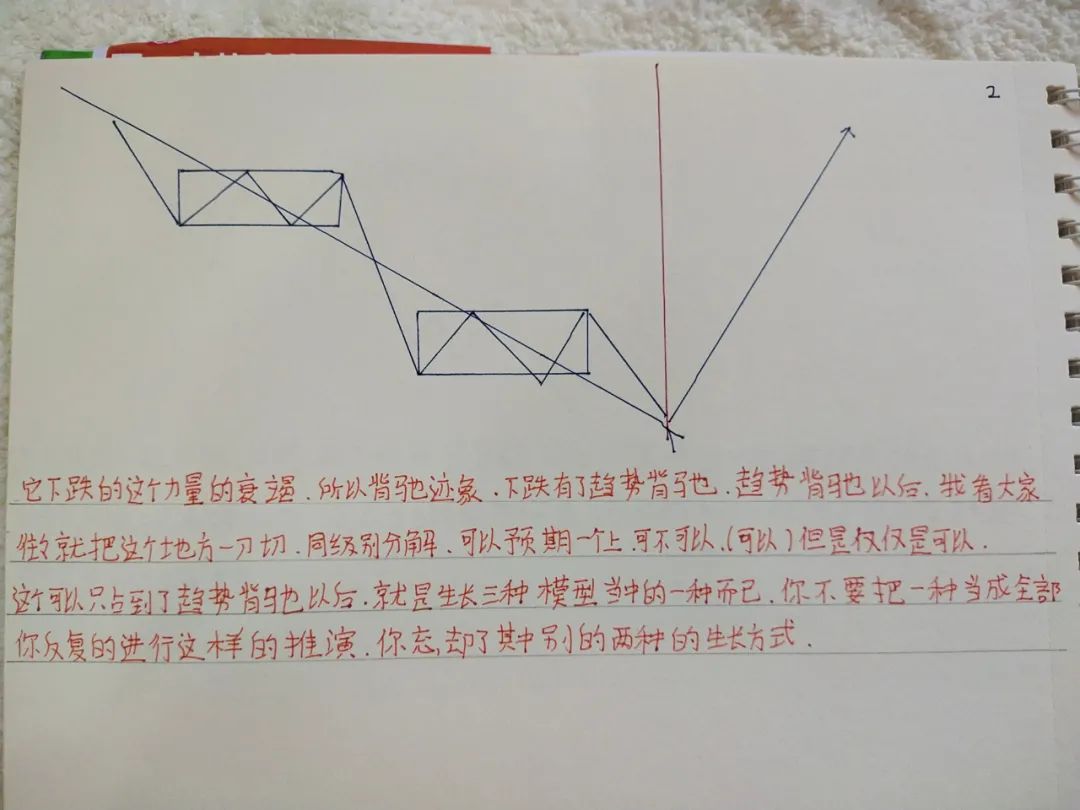 2
它下跌的这个力量的衰竭．所以背驰迹象．下跌有了趋势背驰．趋势背驰以后．我看大家
往往就把这个地方一刀切．同级别分解．可以预期一个上．可不可以．(可以)但是仅仅是可以．
这个可以只占到了趋势背驰以后．就是生长三种模型当中的一种而已．你不要把一种当成全部
你反复的进行这样的推演．你忘却了其中别的两种的生长方式．